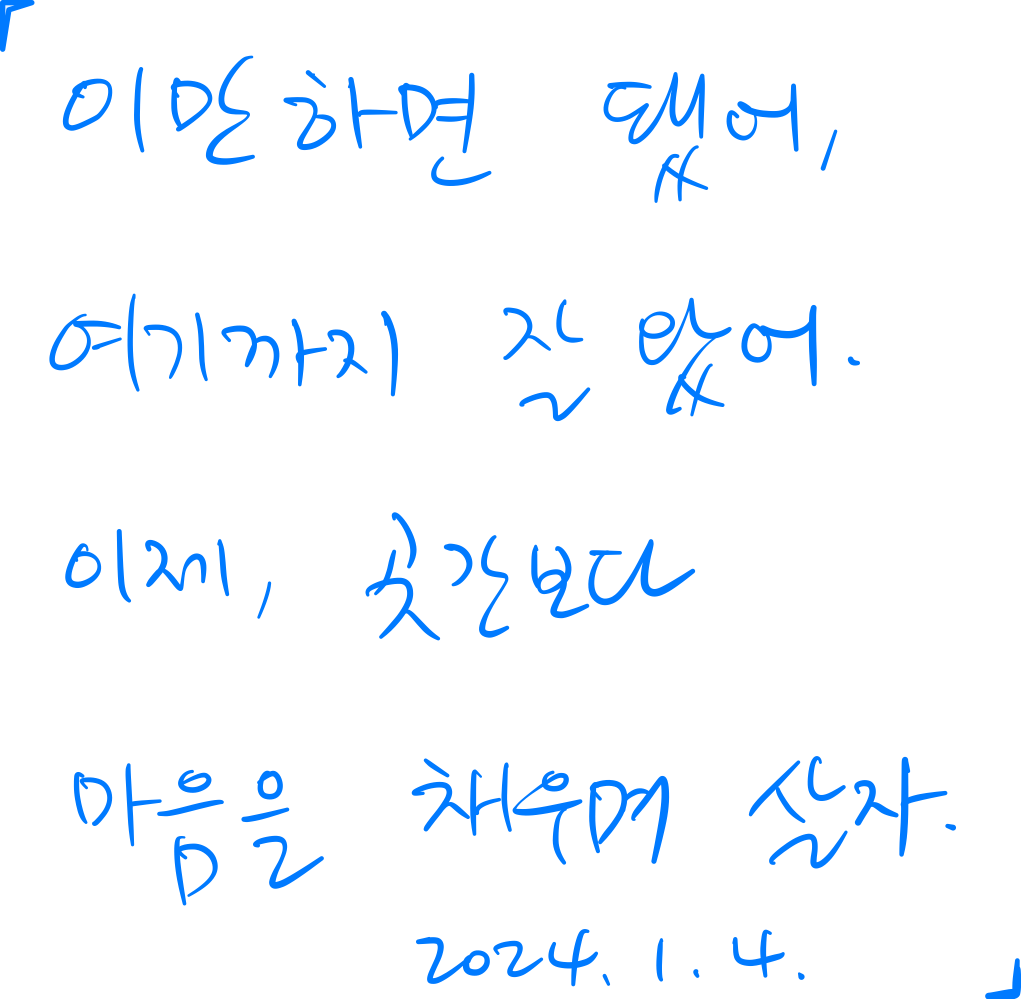 「이만하면 됐어,
여기까지 잘 왔어.
이제, 곳간보다
마음을 채우며 살자.
2024. 1. 4.」